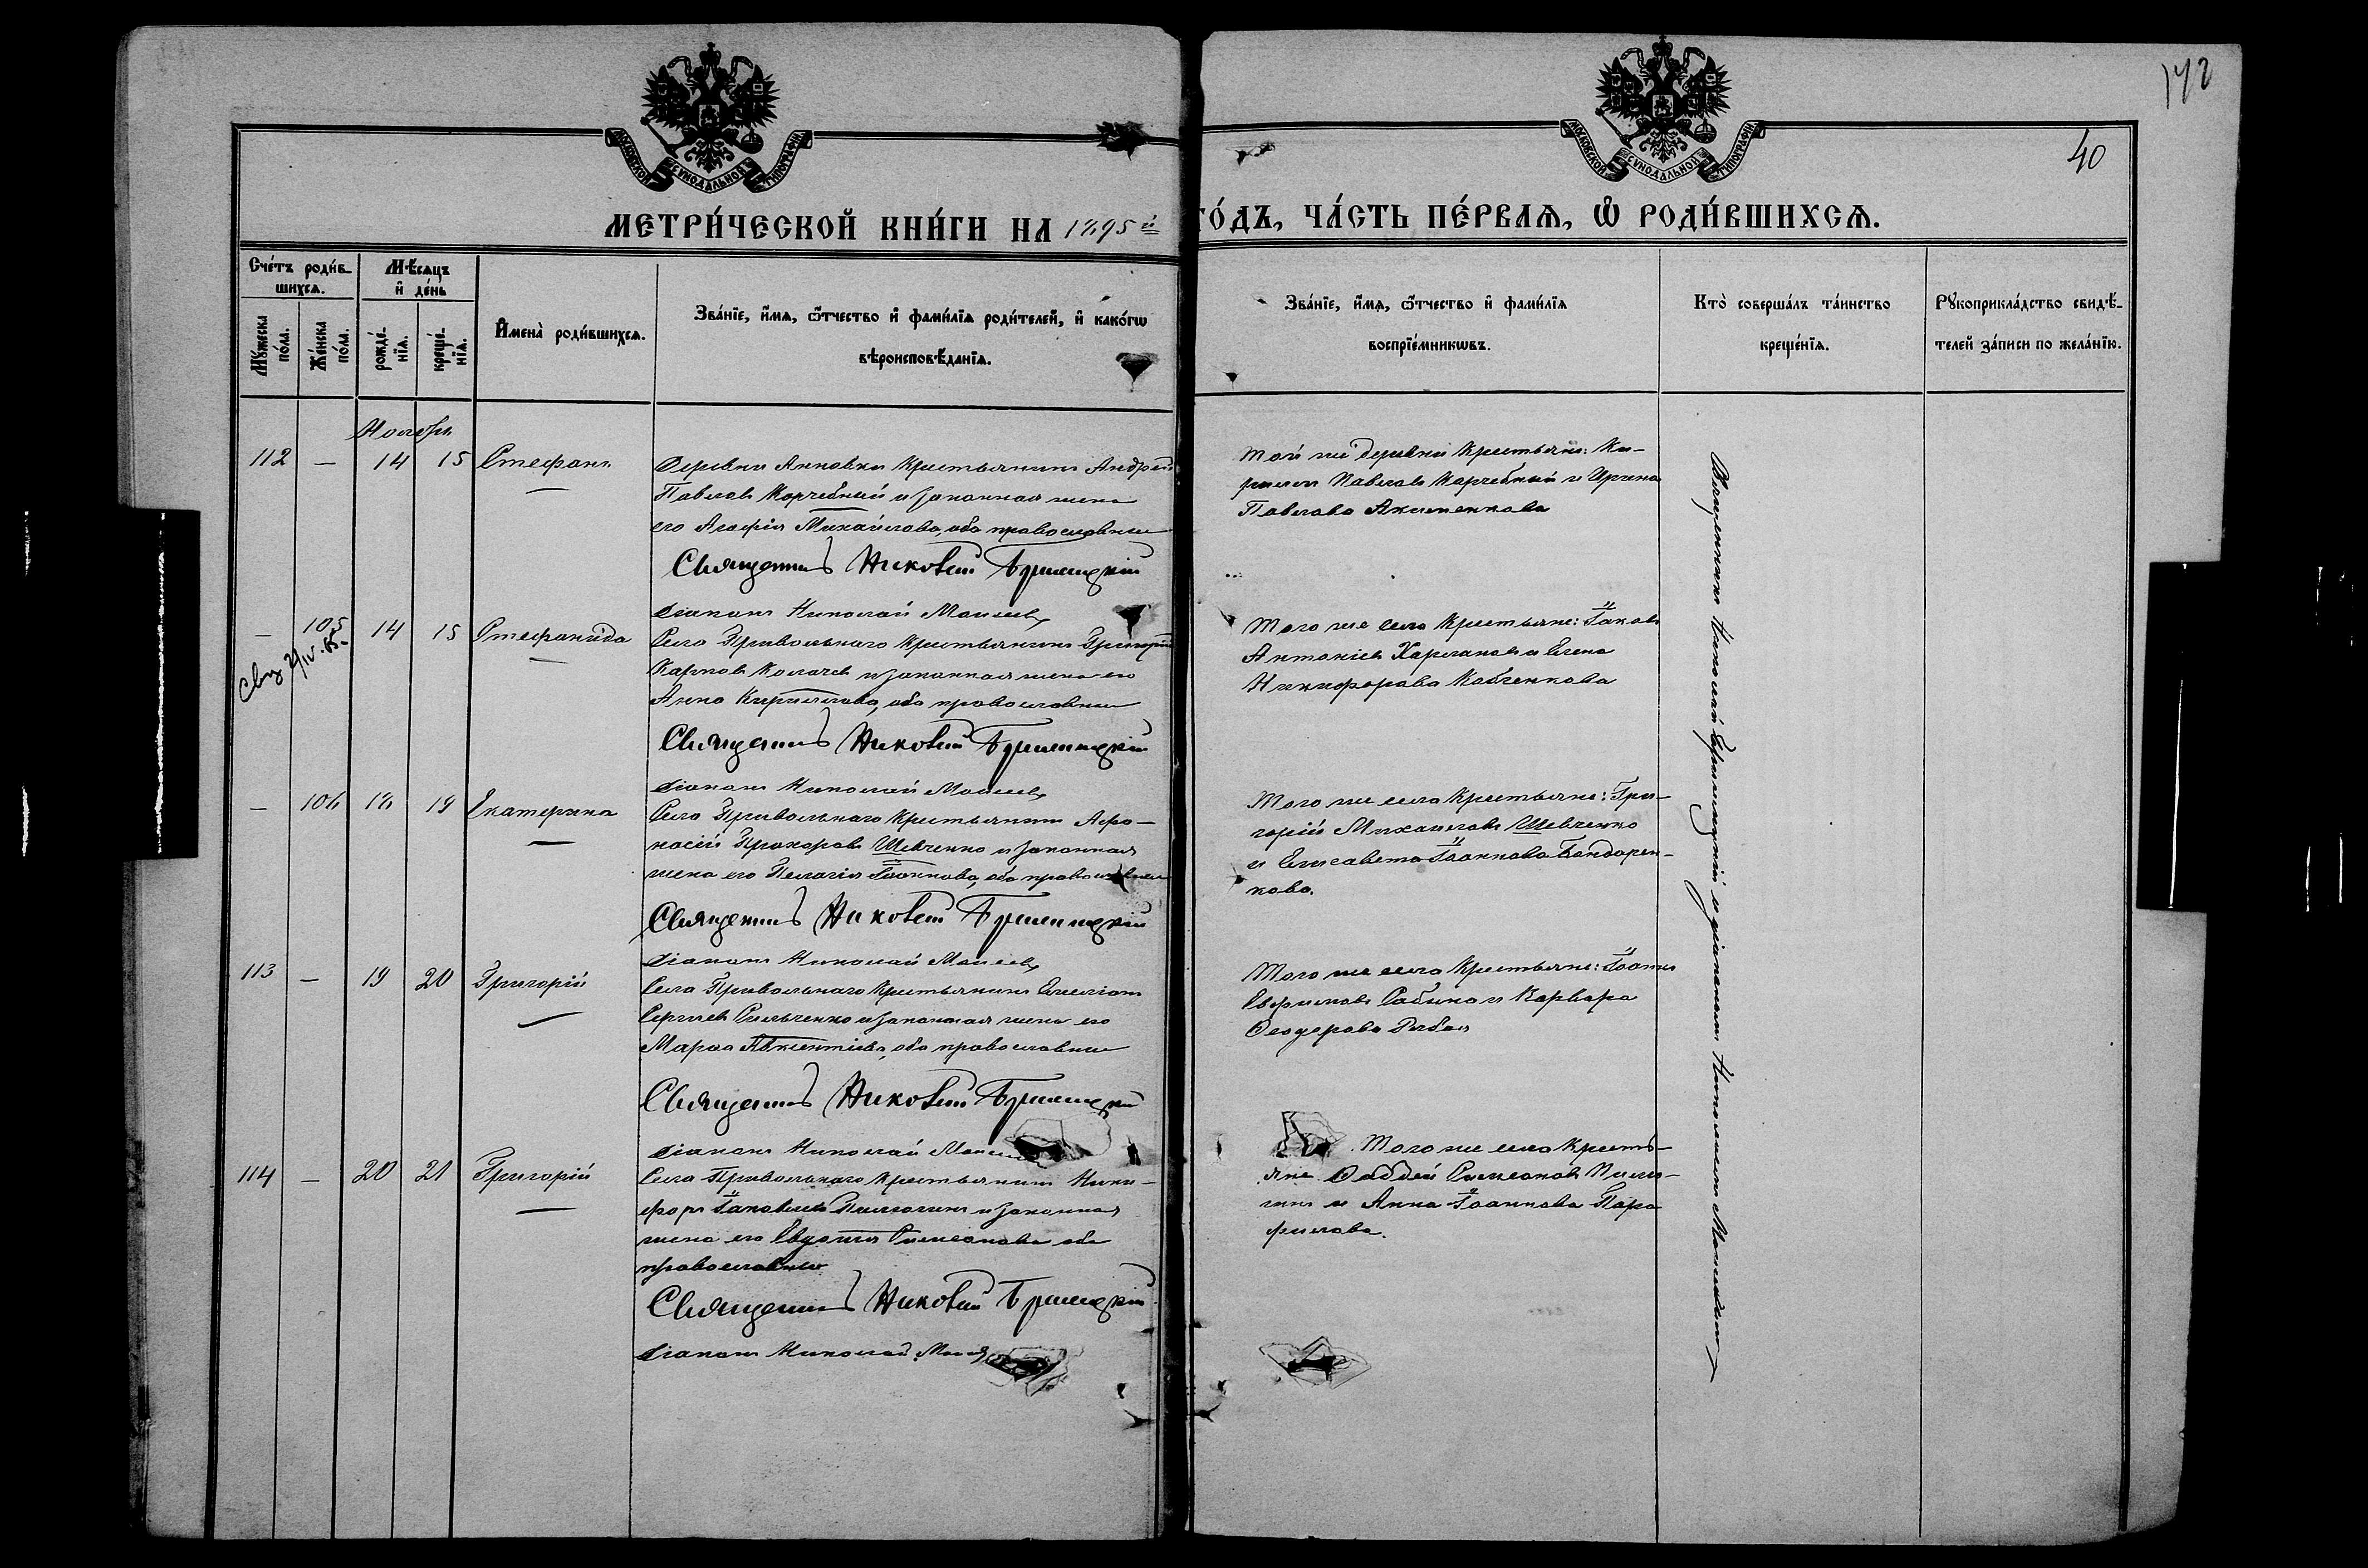 142
40
МОСКОВСКОЙ СѴНОДАЛЬНОЙ ТИПОГРАФІИ
МОСКОВСКОЙ СѴНОДАЛЬНОЙ ТИПОГРАФІИ
МЕТРИ́ЧЕСКОЙ КНИ́ГИ НА 1895й ГО́ДЪ, ЧА́СТЬ ПЕ́РВАѦ, Ѡ РОДИ́ВШИХСѦ.
Сче́тъ роди́в-
шихсѧ.
Мꙋ́жеска по́ла.
Же́нска по́ла.
Мѣ́сѧцъ
и҆ де́нь
рожде́нїѧ.
креще́нїѧ.
И҆мена̀ роди́вшихсѧ.
Зва́нїе, и҆́мѧ, ѻ҆́тчество и҆ фами́лїѧ роди́телей, и҆ како́гѡ
вѣроисповѣ́данїѧ.
Зва́нїе, и҆́мѧ, ѻ҆́тчество и҆ фами́лїѧ
воспрїе́мникѡвъ.
Кто̀ соверша́лъ та́инство
креще́нїѧ.
Рꙋкоприкла́дство свидѣ́-
телей за́писи по жела́нїю.
Ноября
112 — 14 15 Стефанъ
Деревни Анновки крестьянинъ Андрей
Павловъ Корчебный и законная жена
его Агафія Михайлова, оба православные
Священникъ Николай
Діаконъ Николай Моисеев
Той же деревни крестьяне: Ки-
риллъ Павловъ Корчебный и Ирина
Павлова Акименкова
— 105 14 15 Стефанида
Села Привольнаго крестьянинъ Григорій
Карповъ Колачев и законная жена его
Анна Кириллова, оба православные
Священникъ Николай
Діаконъ Николай Моисеев
Того же села крестьяне: Іаковъ
Антоніевъ Харлановъ и Елена
Никифорова Кобченкова
— 106 18 19 Екатерина
Села Привольнаго крестьянинъ Афа-
насій Прохоровъ Шевченко и законная
жена его Пелагія Іоаннова, оба православные
Священникъ Николай
Діаконъ Николай Моисеев
Того же села крестьяне: Гри-
горій Михаиловъ Шевченко
и Елисавета Іоаннова Бондарен-
кова.
113 — 19 20 Григорій
Села Привольнаго крестьянинъ Емеліанъ
Сергіевъ Сильченко и законная жена его
Марѳа Авксентіева, оба православные
Священникъ Николай
Діаконъ Николай Моисеев
Того же села крестьяне: Іоаннъ
Евфимовъ Сабина и Варвара
Ѳеодорова Рябая
114 — 20 21 Григорій
Села Привольнаго крестьянинъ Ники-
форъ Іаковлевъ Пилюгинъ и законная
жена его Евдокія Симеонова оба
православные
Священникъ Николай
Діаконъ Николай
Того же села кресть-
яне Ѳаддей Симеоновъ Пилю-
гинъ и Анна Іоаннова Пара-
филова.
Священникъ Николай и діаконъ Николай